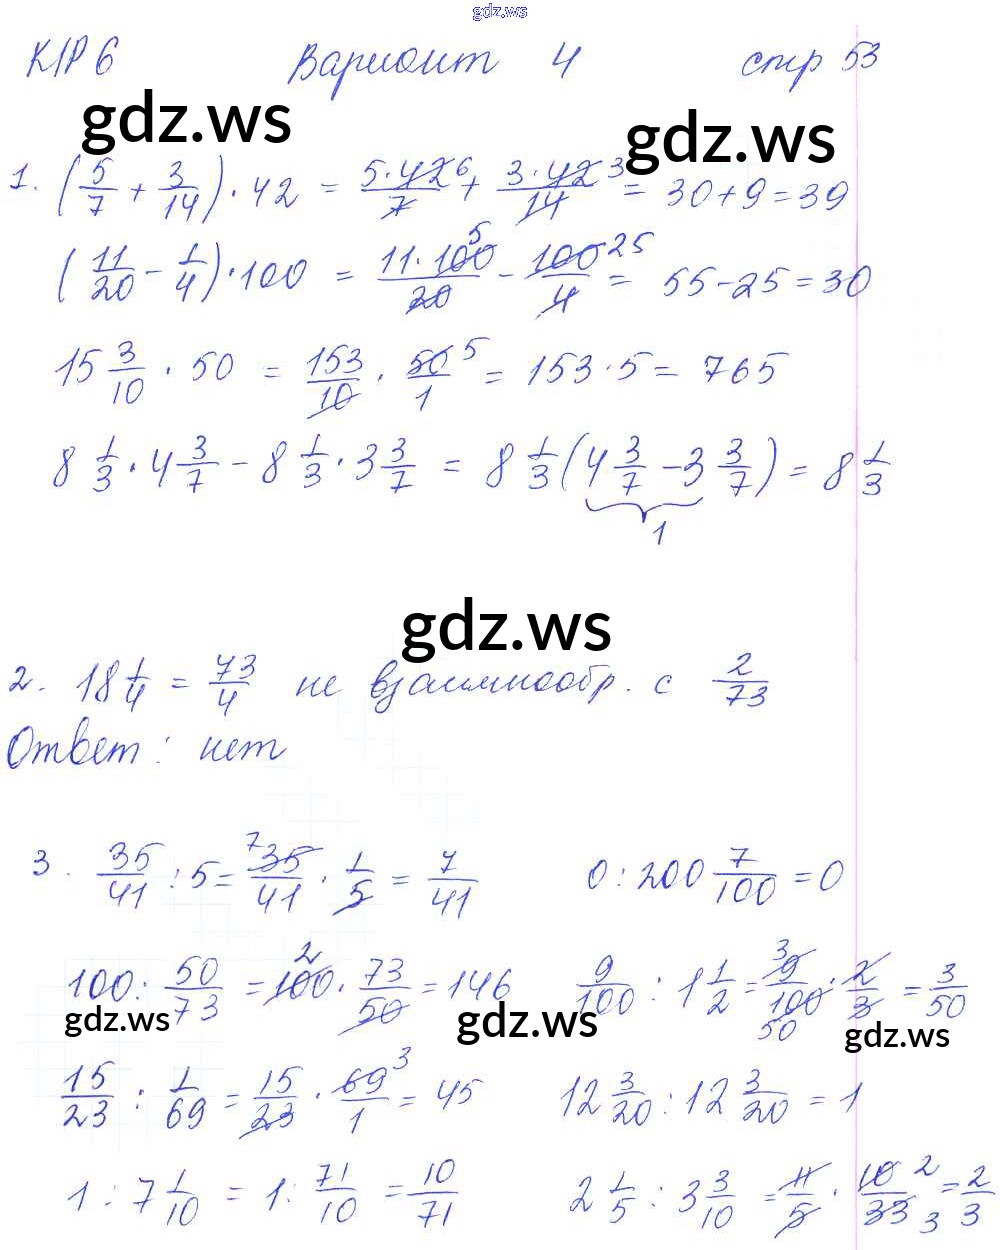 gdz.ws
К/Р 6 Вариант 4 стр 53
gdz.ws gdz.ws
1. (5/7 + 3/14) · 42 = 5·42/7 6 + 3·42/14 3 = 30 + 9 = 39
(11/20 - 1/4) · 100 = 11·100/20 5 - 100/4 25 = 55 - 25 = 30
15 3/10 · 50 = 153/10 · 50/1 5 = 153 · 5 = 765
8 1/3 · 4 3/7 - 8 1/3 · 3 3/7 = 8 1/3 (4 3/7 - 3 3/7) = 8 1/3
1
gdz.ws
2. 18 1/4 = 73/4 не взаимнообр. с 2/73
Ответ: нет
3. 35/41 : 5 = 7 35/41 · 1/5 = 7/41 0 : 200 7/100 = 0
100 : 50/73 = 2 100 · 73/50 = 146 9/100 : 1 1/2 = 3 9/100 50 · 2/3 = 3/50
gdz.ws gdz.ws gdz.ws
15/23 : 1/69 = 15/23 · 69/1 3 = 45 12 3/20 : 12 3/20 = 1
1 : 7 1/10 = 1 : 71/10 = 10/71 2 1/5 : 3 3/10 = 11/5 · 10/33 2 3 = 2/3